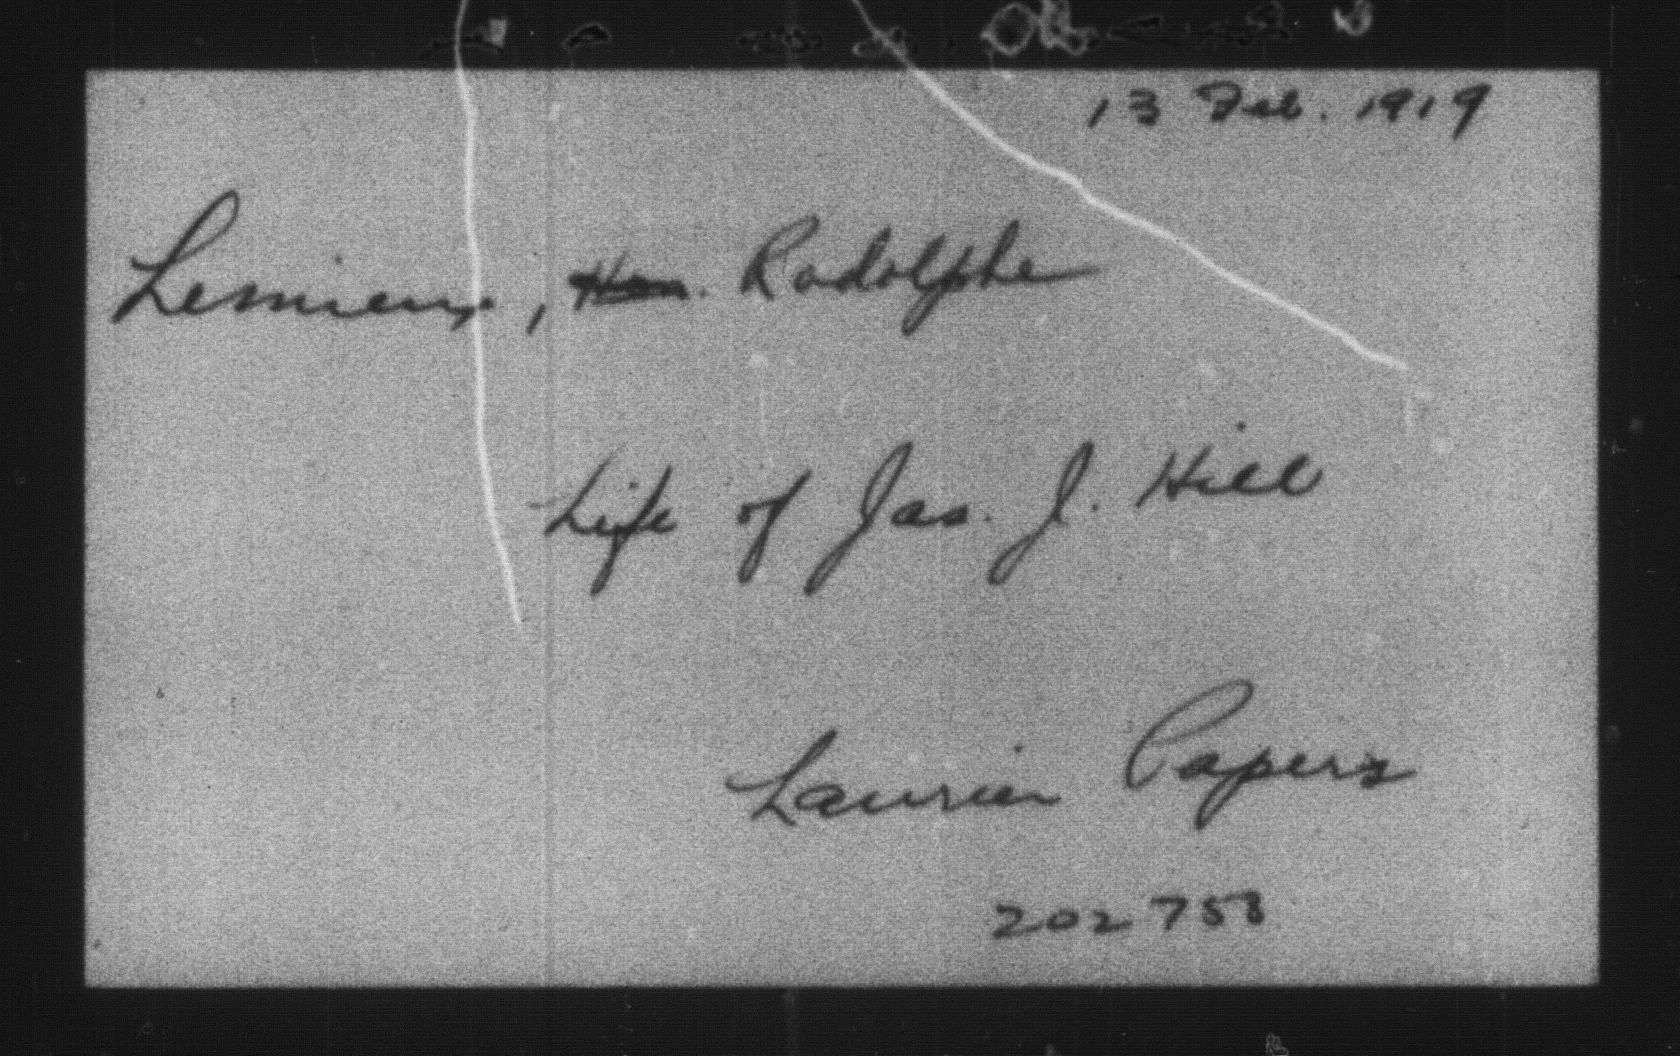 13 Feb. 1919
Lemieux, Hon. Rodolphe
Life of Jas. J. Hill
Laurier Papers
202753